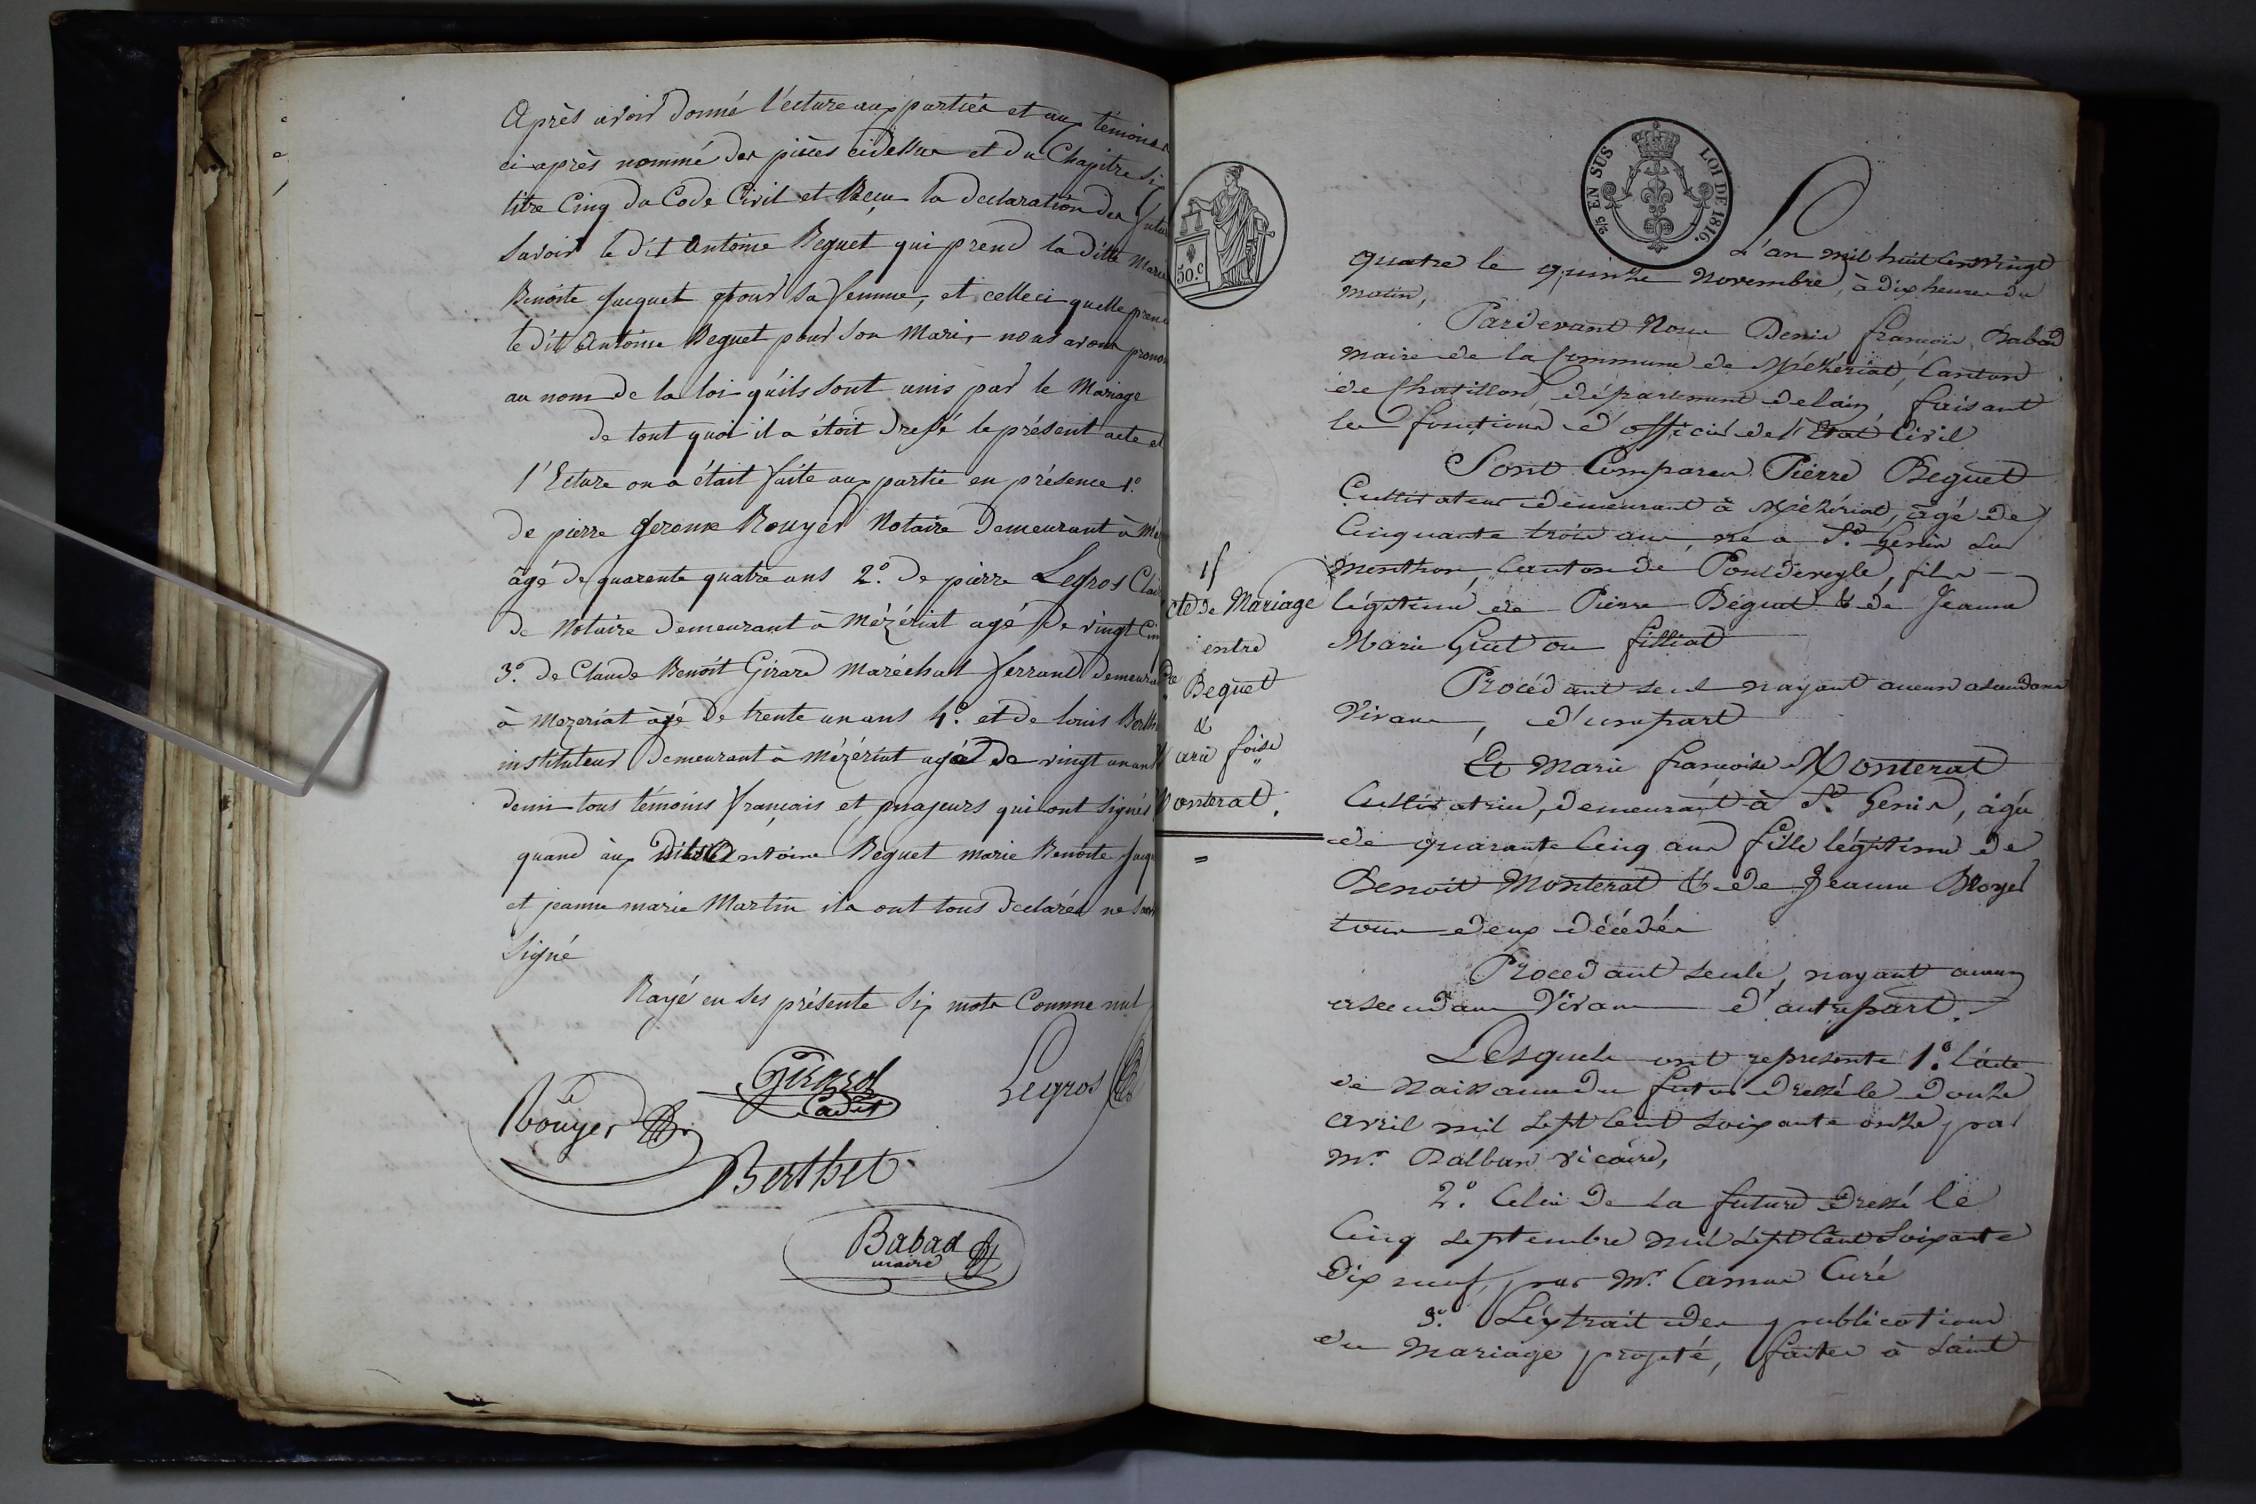 Après avoir donné l'ecture aux parties et aux temoins
ci après nommé des pièces cidessus et du Chapitre six
titre Cinq du Code Civil et Recu la declaration des futu
Savoir le dit Antoine Beguet qui prend la ditte Marie
Benoite Jucquet pour sa femme, et celleci quelle prend
le dit Antoine Beguet pour son Mari, nous avons pronon
au nom de la loi qu'ils sont unis par le Mariage
de tout quoi il a étoit dressé le présent acte et
l'Ecture on a était faite aux partie en présence 1.o
de pierre Jerome Rouyer Notaire demeurant à Méz
âgé de quarente quatre ans 2.o de pierre Legros Clai
de Notaire demeurant à Mézériat agé de vingt Cin
3.o de Claude Benoît Girard Maréchal ferrant demeurant
à Mezeriat âgé de trente un ans 4.o et de louis Berth
instituteur demeurant à Mézériat agé de vingt un an
demi tous témoins français et majeurs qui ont signés
quand aux Antoine Beguet marie Benoite Jucqu
et jeanne marie Martin ils ont tous declarés ne savoir
signé
Rayé en ses présente six mots Comme nul
Girard
Cadet
Legros
Rouyer
Berthet
Babad
maire
50.c
2/5 EN SUS
LOI DE 1816.
L'an mil huit cent vingt
quatre le quinze novembre, à dix heures du
matin,
Pardevant Nous Denis françois Babad
maire de la Commune de Mézériat, Canton
de Chatillon département de lain, faisant
les fonctions d'officier de l'Etat Civil
Sont Comparus Pierre Beguet
Cultivateur demeurant à Mézériat, âgé de
Cinquante trois ans, né à St Genis sur
menthon, Canton de Pontdeveyle, fils
légitime de Pierre Béguet & de Jeanne
Marie Guet ou filliat
Procédant seul nayant aucun ascendans
vivans, d'unepart
Et Marie françoise Monterat
Cultivatrice, demeurant à St Genis, âgée
de quarante Cinq ans fille légitime de
Benoit Monterat & de Jeanne Broyer
tous deux décédés
Procedant seule, nayant aucun
ascendans vivans d'autrepart.
Lesquels ont representé 1.o l'acte
de Naissance du futur dressé le douze
avril mil sept Cent soixante onze par
Mr. Balban vicaire,
2.o Celui de la future dressé le
Cinq septembre mil sept Cent soixante
dix neuf, par Mr Camus Curé
3.o L'extrait des publications
du Mariage projeté, faites à saint
cte de Mariage
entre
Beguet
&
arie foise
onterat.